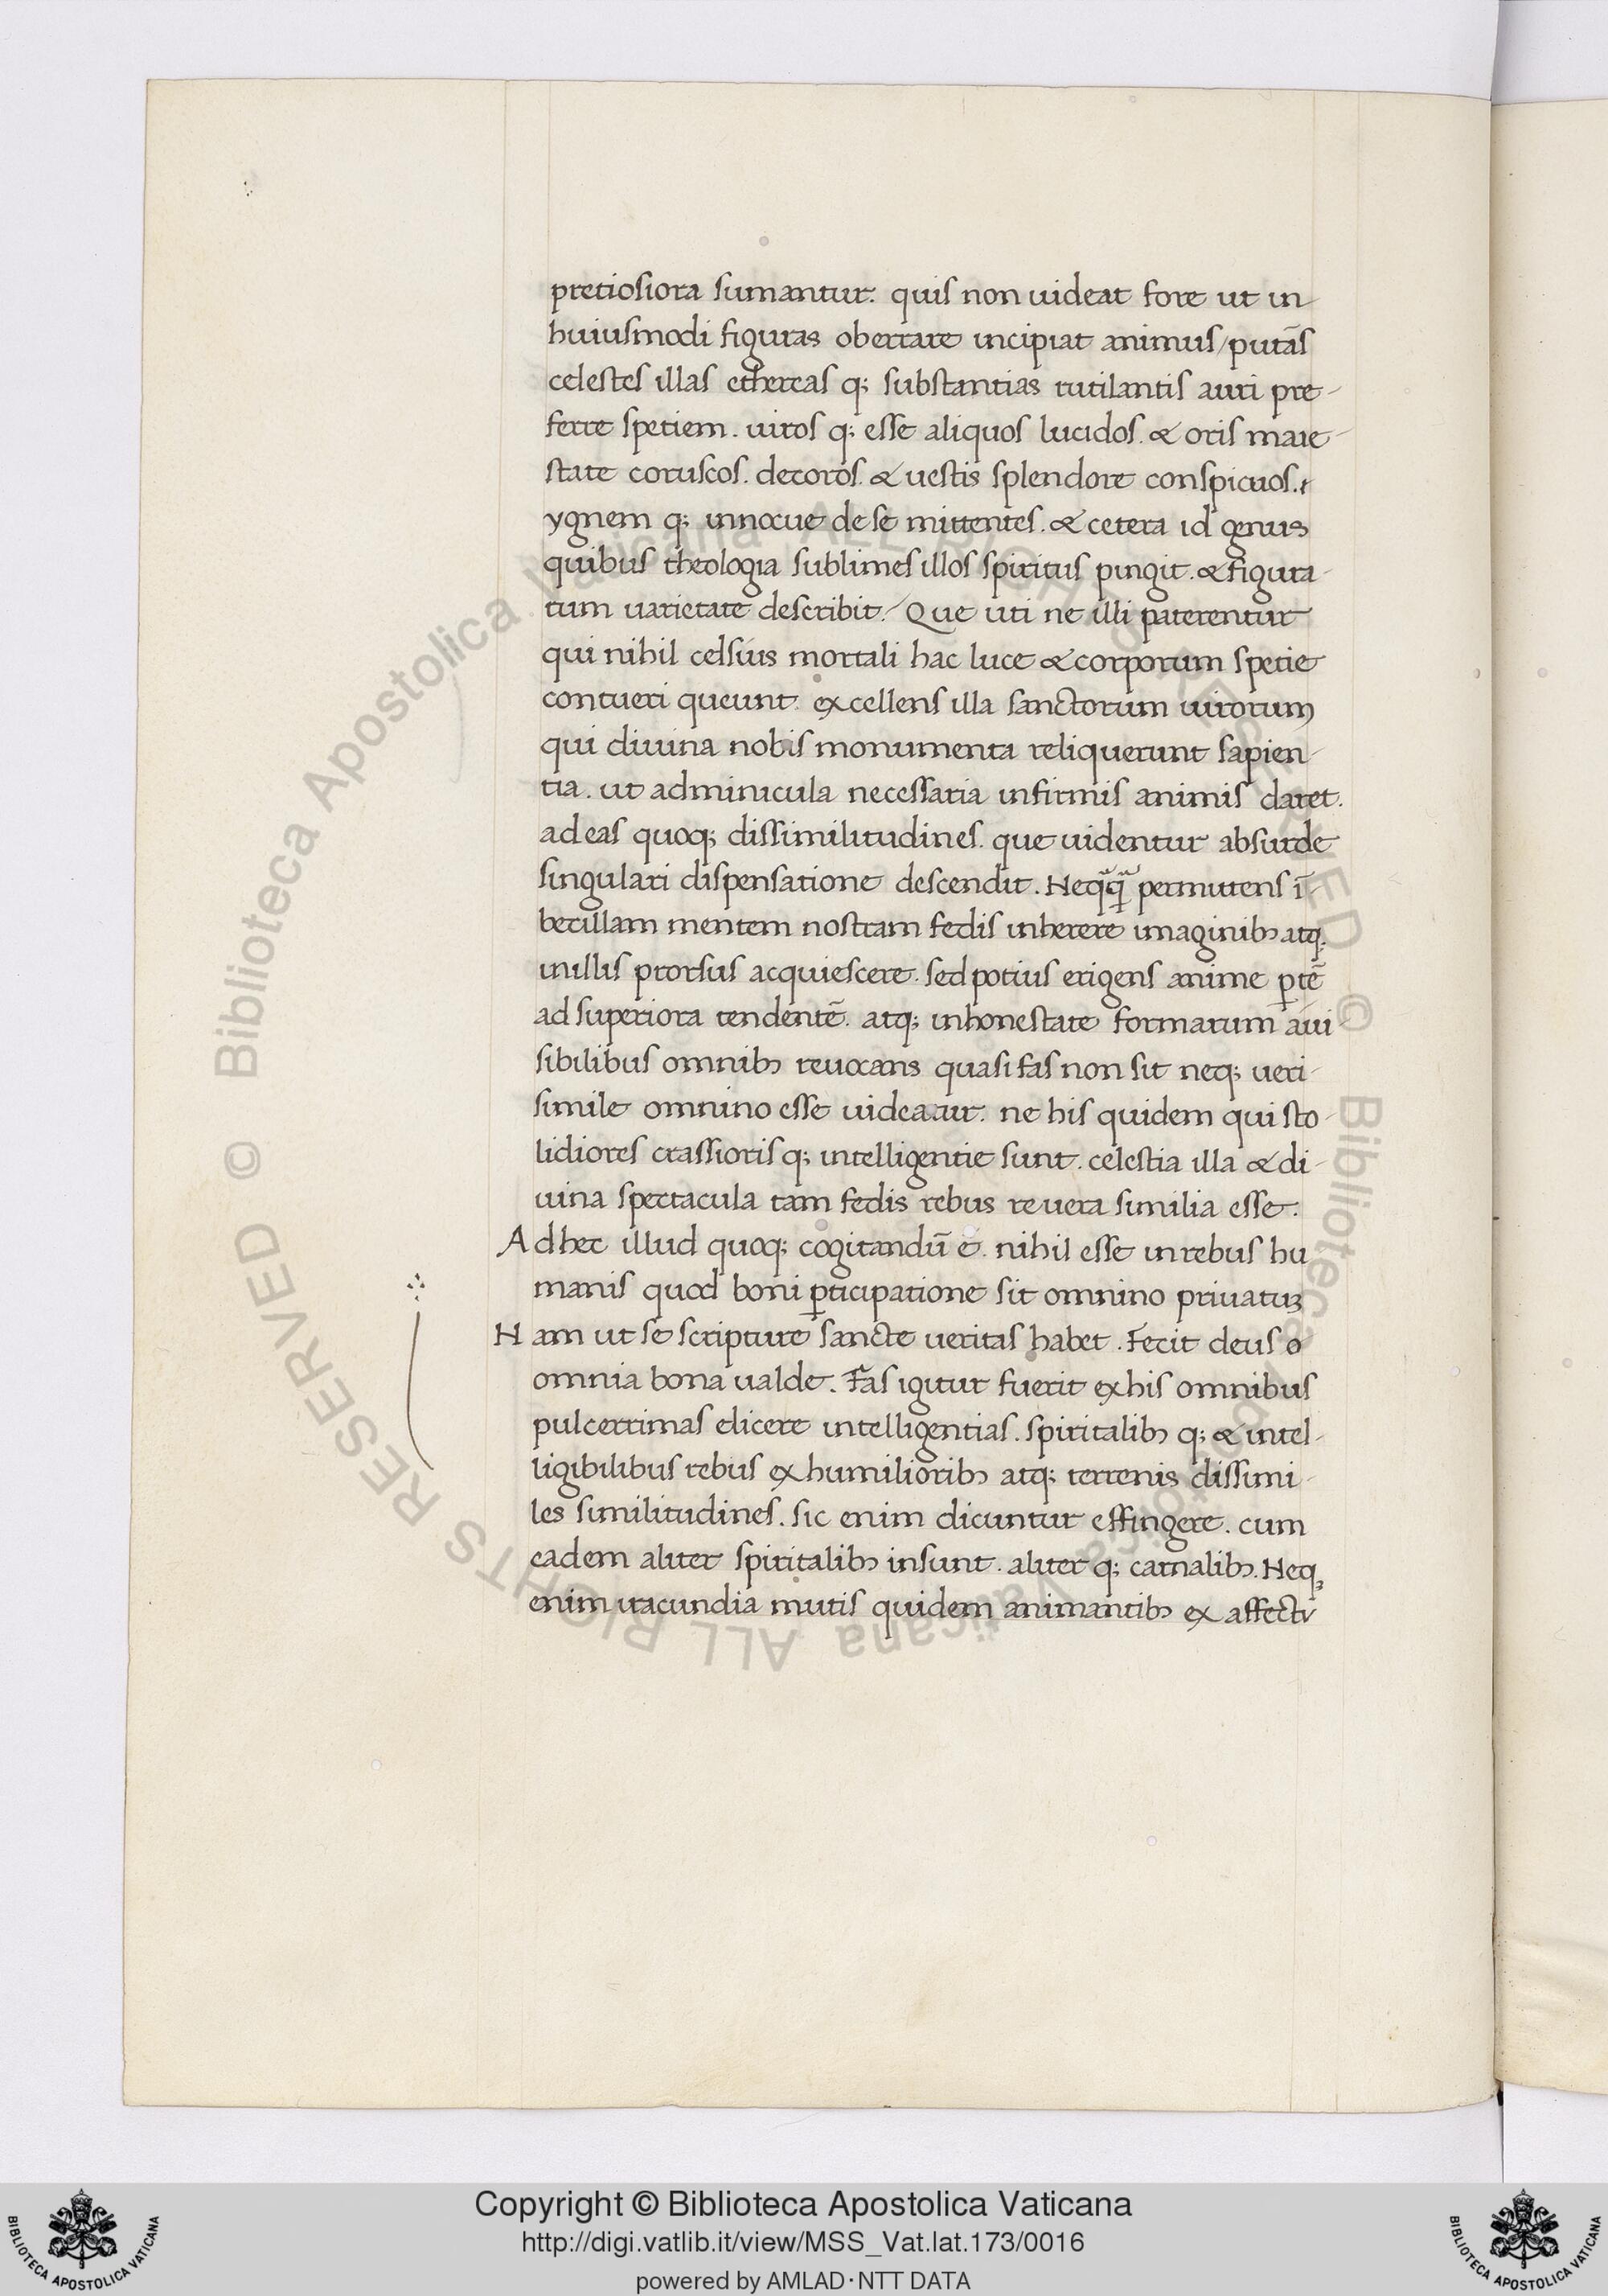 pretiosiora sumantur. quis non uideat fore ut in
huiusmodi figuras oberrare incipiat animus/putãs
celestes illas ethereas q; substantias rutilantis auri pre-
ferre spetiem. uiros q; esse aliquos lucidos. & oris maie-
state coruscos. decoros. & uestis splendore conspicuos.
ygnem q; innocue de se mittentes. & cetera id genus
quibus theologia sublimes illos spiritus pingit. & figura-
rum uarietate describit. Que uti ne illi paterentur
qui nihil celsius mortali hac luce & corporum spetie
contueri queunt. excellens illa sanctorum uirorum
qui diuina nobis monumenta reliquerunt sapien-
tia. ut adminicula necessaria infirmis animis daret.
ad eas quoq; dissimilitudines. que uidentur absurde
singulari dispensatione descendit. Neq̃q̃ permittens ĩ-
becillam mentem nostram fedis inherere imaginibɔ atq;
in illis prorsus acquiescere. sed potius erigens anime ꝑtẽ
ad superiora tendentẽ. atq; inhonestate formarum a ui-
sibilibus omnibɔ reuocans quasi fas non sit neq; ueri-
simile omnino esse uideatur. ne his quidem qui sto-
lidiores crassioris q; intelligentie sunt. celestia illa & di-
uina spectacula tam fedis rebus reuera similia esse.
Ad hec illud quoq; cogitandũ ẽ. nihil esse in rebus hu
manis quod boni ꝑticipatione sit omnino priuatuꝫ
Nam ut se scripture sancte ueritas habet. Fecit deus o
omnia bona ualde. Fas igitur fuerit ex his omnibus
pulcerrimas elicere intelligentias. spiritalibɔ q; & intel-
ligibilibus rebus ex humilioribɔ atq; terrenis dissimi-
les similitudines. sic enim dicuntur effingere. cum
eadem aliter spiritalibɔ insunt. aliter q; carnalibɔ. Neq;
enim iracundia mutis quidem animantibɔ ex affectu
© Biblioteca Apostolica Vaticana ALL RIGHTS RESERVED © Biblioteca Apostolica Vaticana ALL RIGHTS RESERVED
Copyright © Biblioteca Apostolica Vaticana
http://digi.vatlib.it/view/MSS_Vat.lat.173/0016
powered by AMLAD·NTT DATA
BIBLIOTECA APOSTOLICA VATICANA
BIBLIOTECA APOSTOLICA VATICANA